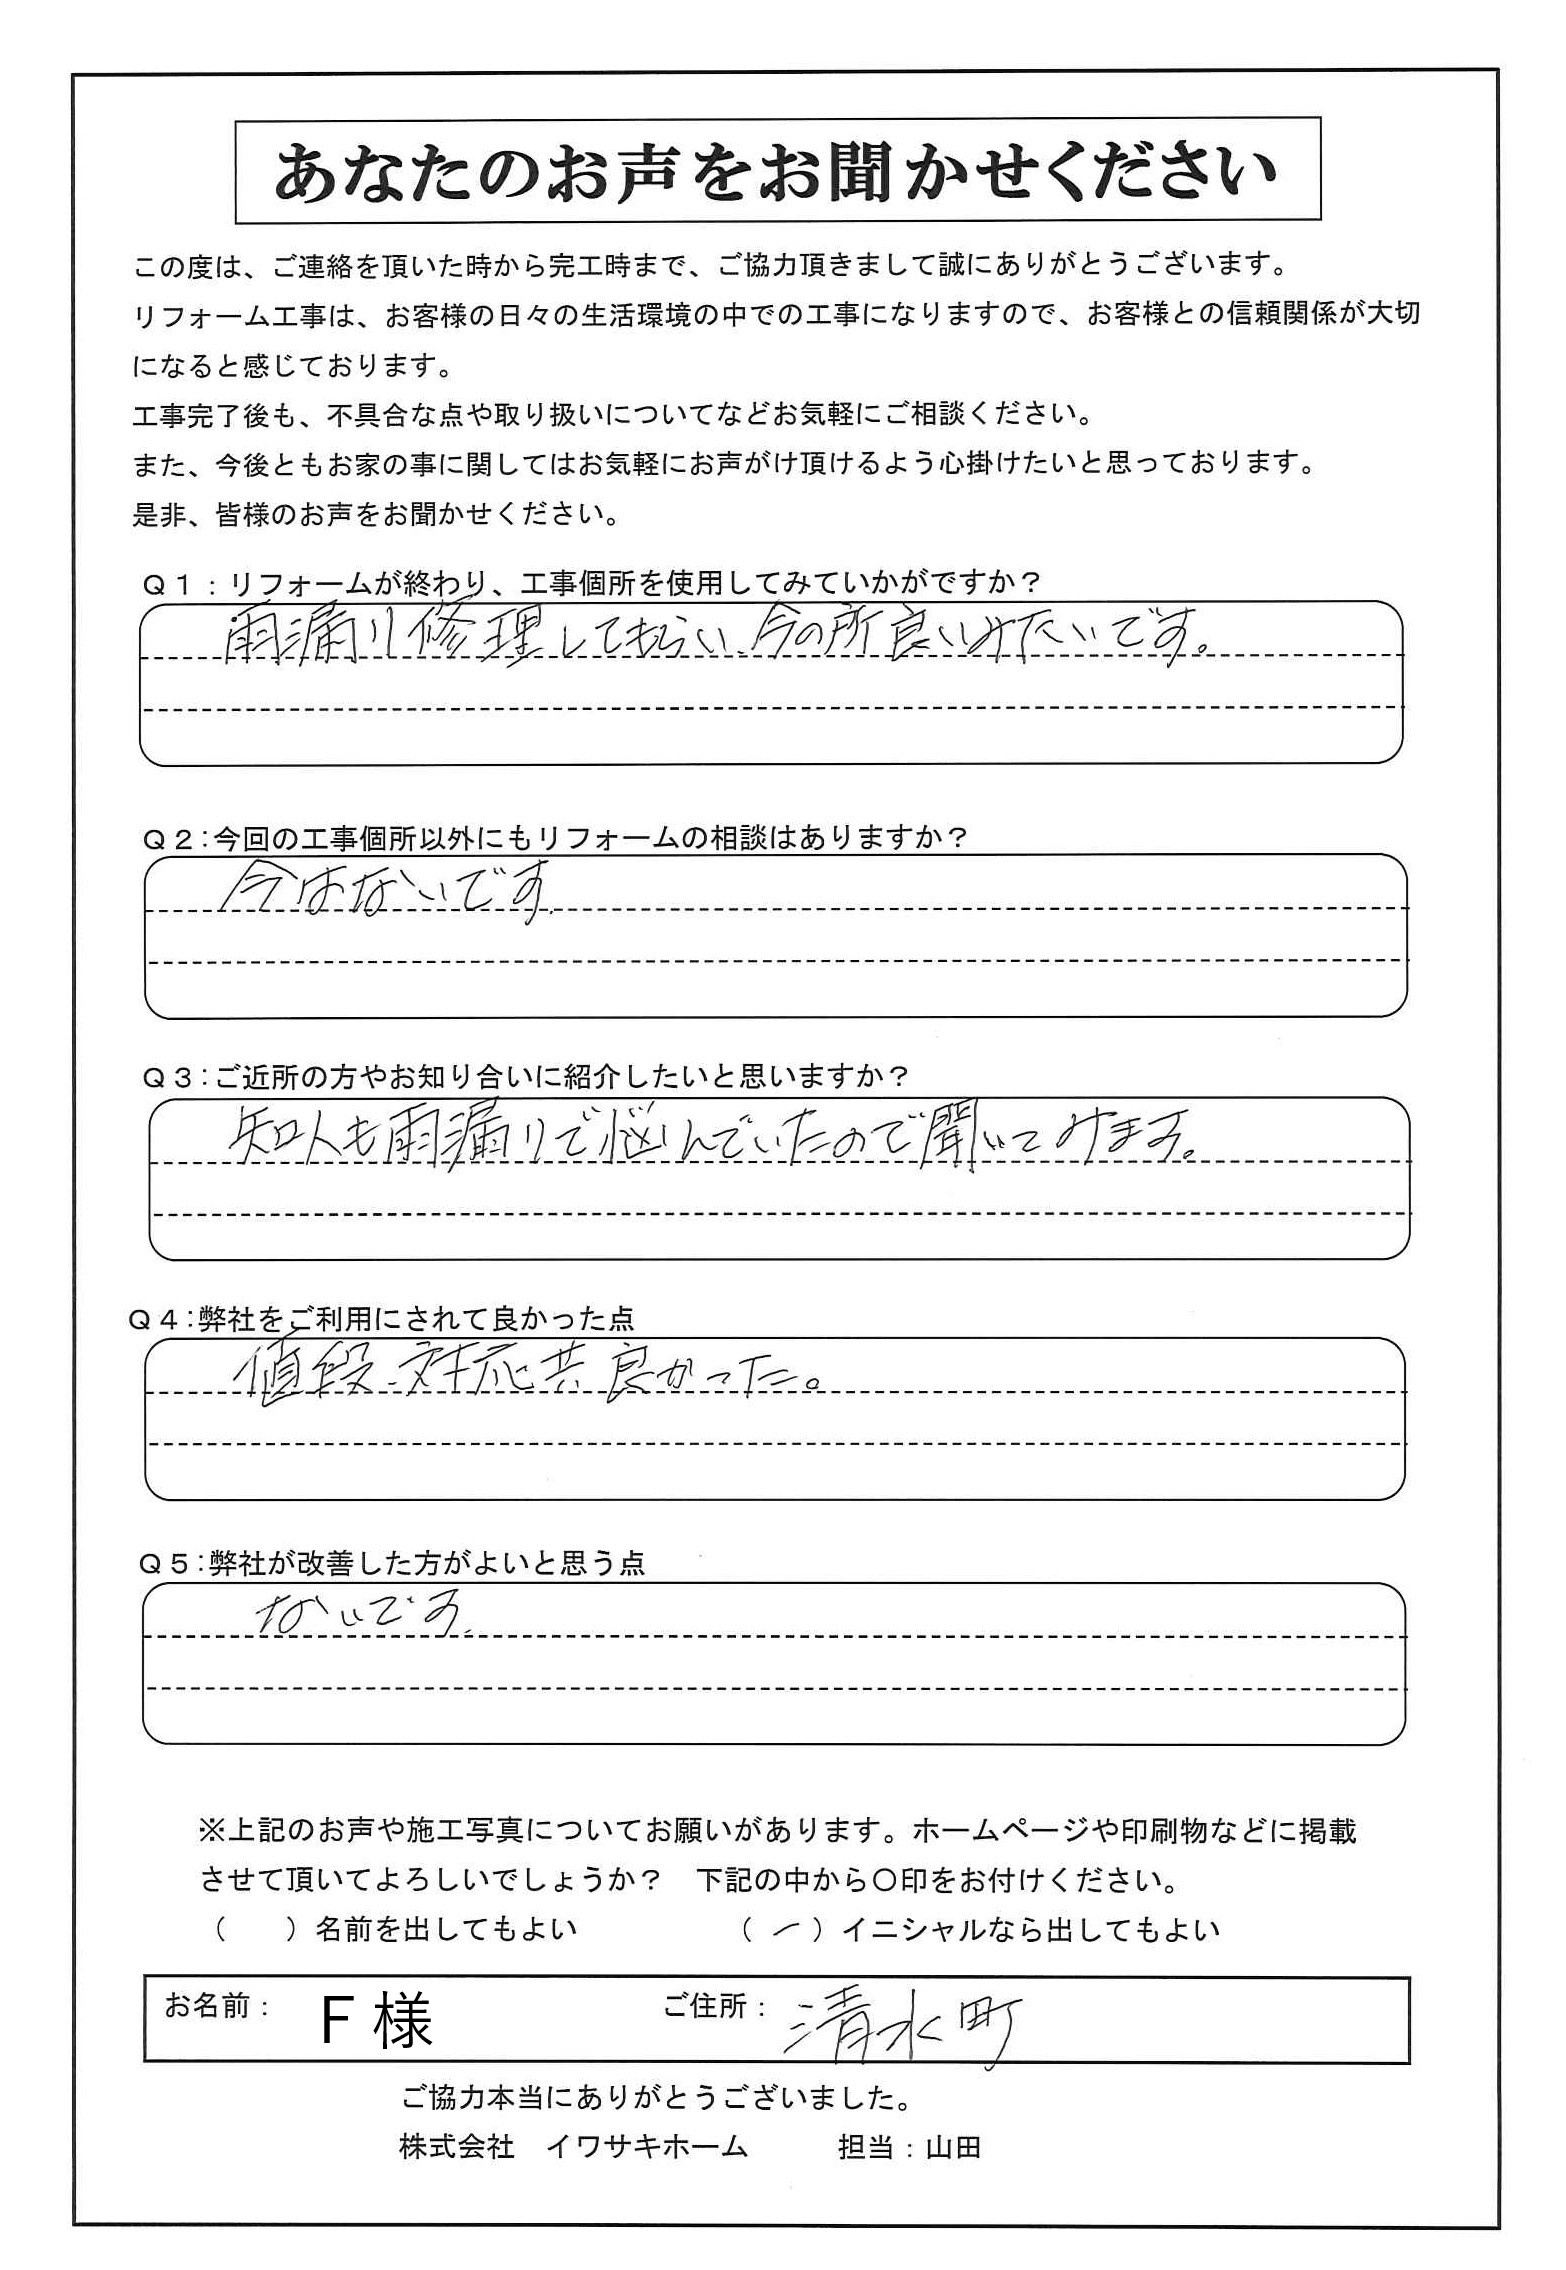 あなたのお声をお聞かせください
この度は、ご連絡を頂いた時から完工時まで、ご協力頂きまして誠にありがとうございます。
リフォーム工事は、お客様の日々の生活環境の中での工事になりますので、お客様との信頼関係が大切
になると感じております。
工事完了後も、不具合な点や取り扱いについてなどお気軽にご相談ください。
また、今後ともお家の事に関してはお気軽にお声がけ頂けるよう心掛けたいと思っております。
是非、皆様のお声をお聞かせください。
Q1：リフォームが終わり、工事個所を使用してみていかがですか？
雨漏り修理してもらい、今の所良いみたいです。
Q2：今回の工事個所以外にもリフォームの相談はありますか？
今はないです。
Q3：ご近所の方やお知り合いに紹介したいと思いますか？
知人も雨漏りで悩んでいたので聞いてみます。
Q4：弊社をご利用にされて良かった点
値段、対応共良かった。
Q5：弊社が改善した方がよいと思う点
ないです。
※上記のお声や施工写真についてお願いがあります。ホームページや印刷物などに掲載
させて頂いてよろしいでしょうか？　下記の中から〇印をお付けください。
（　　）名前を出してもよい　（　）イニシャルなら出してもよい
お名前：　F様　ご住所：　清水町
ご協力本当にありがとうございました。
株式会社　イワサキホーム　担当：山田